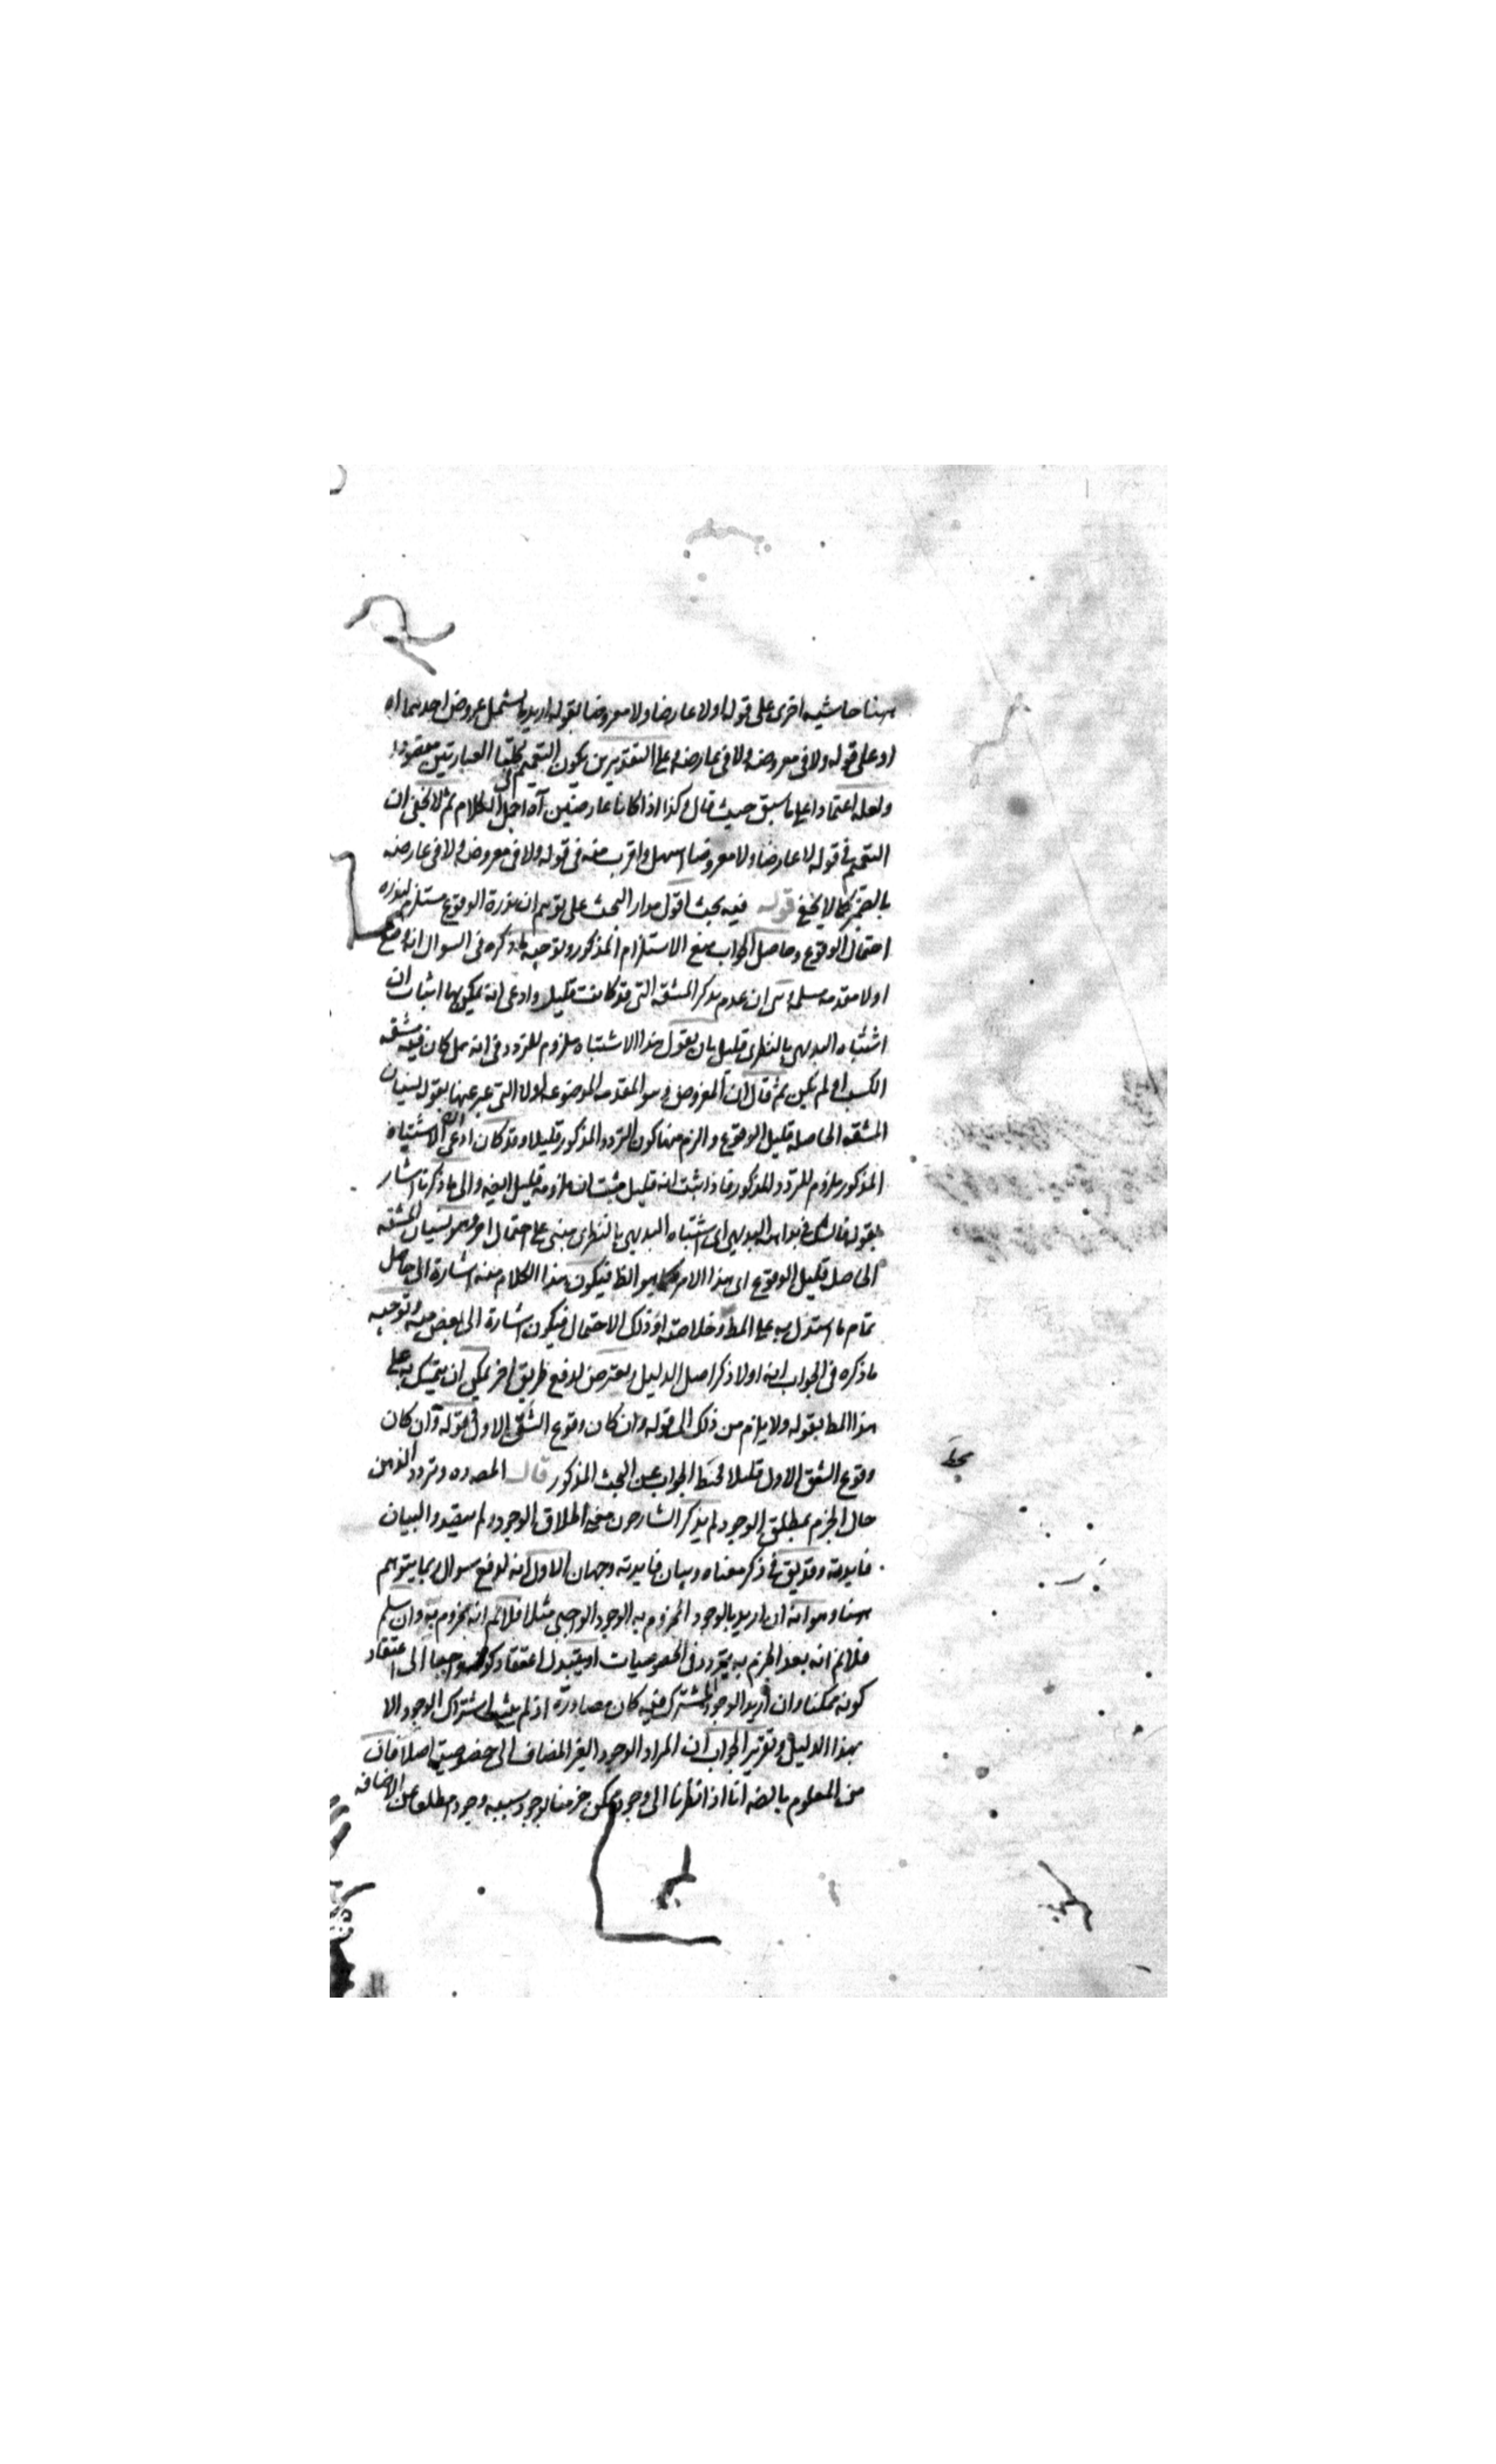 هنا حاشيه اخرى على قوله اولا عارضا ولا معروضا بقوله اريد ما يشمل عروض احدهما اه
او على قوله ولا فى معروضه ولا فى عارضه وعلى التقديرين يكون التعميم فى كلتا العبارتين مقصودا
ولعله اعتمادا على ما سبق حيث قال وكذا اذا كانا عارضين آه اجمل الكلام ثم لا يخفى ان
التعميم فى قوله لا عارضا ولا معروضا اسهل واقرب منه فى قوله ولا فى معروضه ولا فى عارضه
كما لا يخفى قوله فيه بحث اقول مدار البحث على توهم ان ندرة الوقوع مستلزم لندره
احتمال الوقوع وحاصل الجواب منع الاستلزام المذكور وتوجيه ما ذكره فى السوال انه وضع
اولا مقدمه مسلمة وهى ان عدم تذكر المشقه التى قد كانت قليل وادعى انه يمكن بها اثبات ان
اشتباه البديهى بالنظرى قليل بان يقول هذا الاشتباه ملزوم للتردد فى انه هل كان فيه مشقه
الكسب او لم يكن ثم قال ان المفروض وهو المقدمه الموضوعه اولا التى عبر عنها بقوله نسيان
المشقه الحاصله قليل الوقوع والزم منها كون التردد المذكور قليلا وقد كان ادعى ان الاشتباه
المذكور ملزوم للتردد المذكور فاذا ثبت انه قليل ثبت ان ملزومه قليل ايضه والى ما ذكرنا اشار
بقوله فالشك فى بداهه البديهى اى اشتباه البديهى بالنظرى مبنى على احتمال امر وهو نسيان المشقه
الحاصل قليل الوقوع اى هذا الامر كما هو الظ فيكون هذا الكلام منه اشارة الى حاصل
تمام ما استدل به على المط وخلاصته او ذلك الاحتمال فيكون اشارة الى بعض منه وتوجيه
ما ذكره فى الجواب انه اولا ذكر اصل الدليل وتعرض لدفع طريق اخر يمكن ان يتمسك به على
هذا المط بقوله ولا يلزم من ذلك الى قوله وان كان وقوع الشق الاول فى قوله وان كان
وقوع الشق الاول قليلا الجواب عن البحث المذكور قال المصه ره وتردد الذهن
حال الجزم بمطلق الوجود لم يذكر الشارحون معنى اطلاق الوجود ولم يتصدوا لبيان
فايدته وقد يق فى ذكر معناه وبيان فايدته وجهان الاول انه لدفع سوال ربما يتوهم
هنا وهو انه ان اريد بالوجود المجزوم به الوجود الواجبى مثلا فلا نم انه مجزوم به وان سلم
فلا نم انه بعد الجزم به يتردد فى الخصوصيات او يتبدل اعتقاد كونه واجبا الى اعتقاد
كونه ممكنا وان اريد الوجود المشترك فيه كان مصادرة اذ لم يثبت اشتراك الوجود الا
بهذا الدليل وتقرير الجواب ان المراد الوجود الغير المضاف الى خصوصية اصلا فان
من المعلوم بالضه انا اذا نظرنا الى وجود ممكن جزمنا بوجود سببه وجود مطلقا عن الاضافه